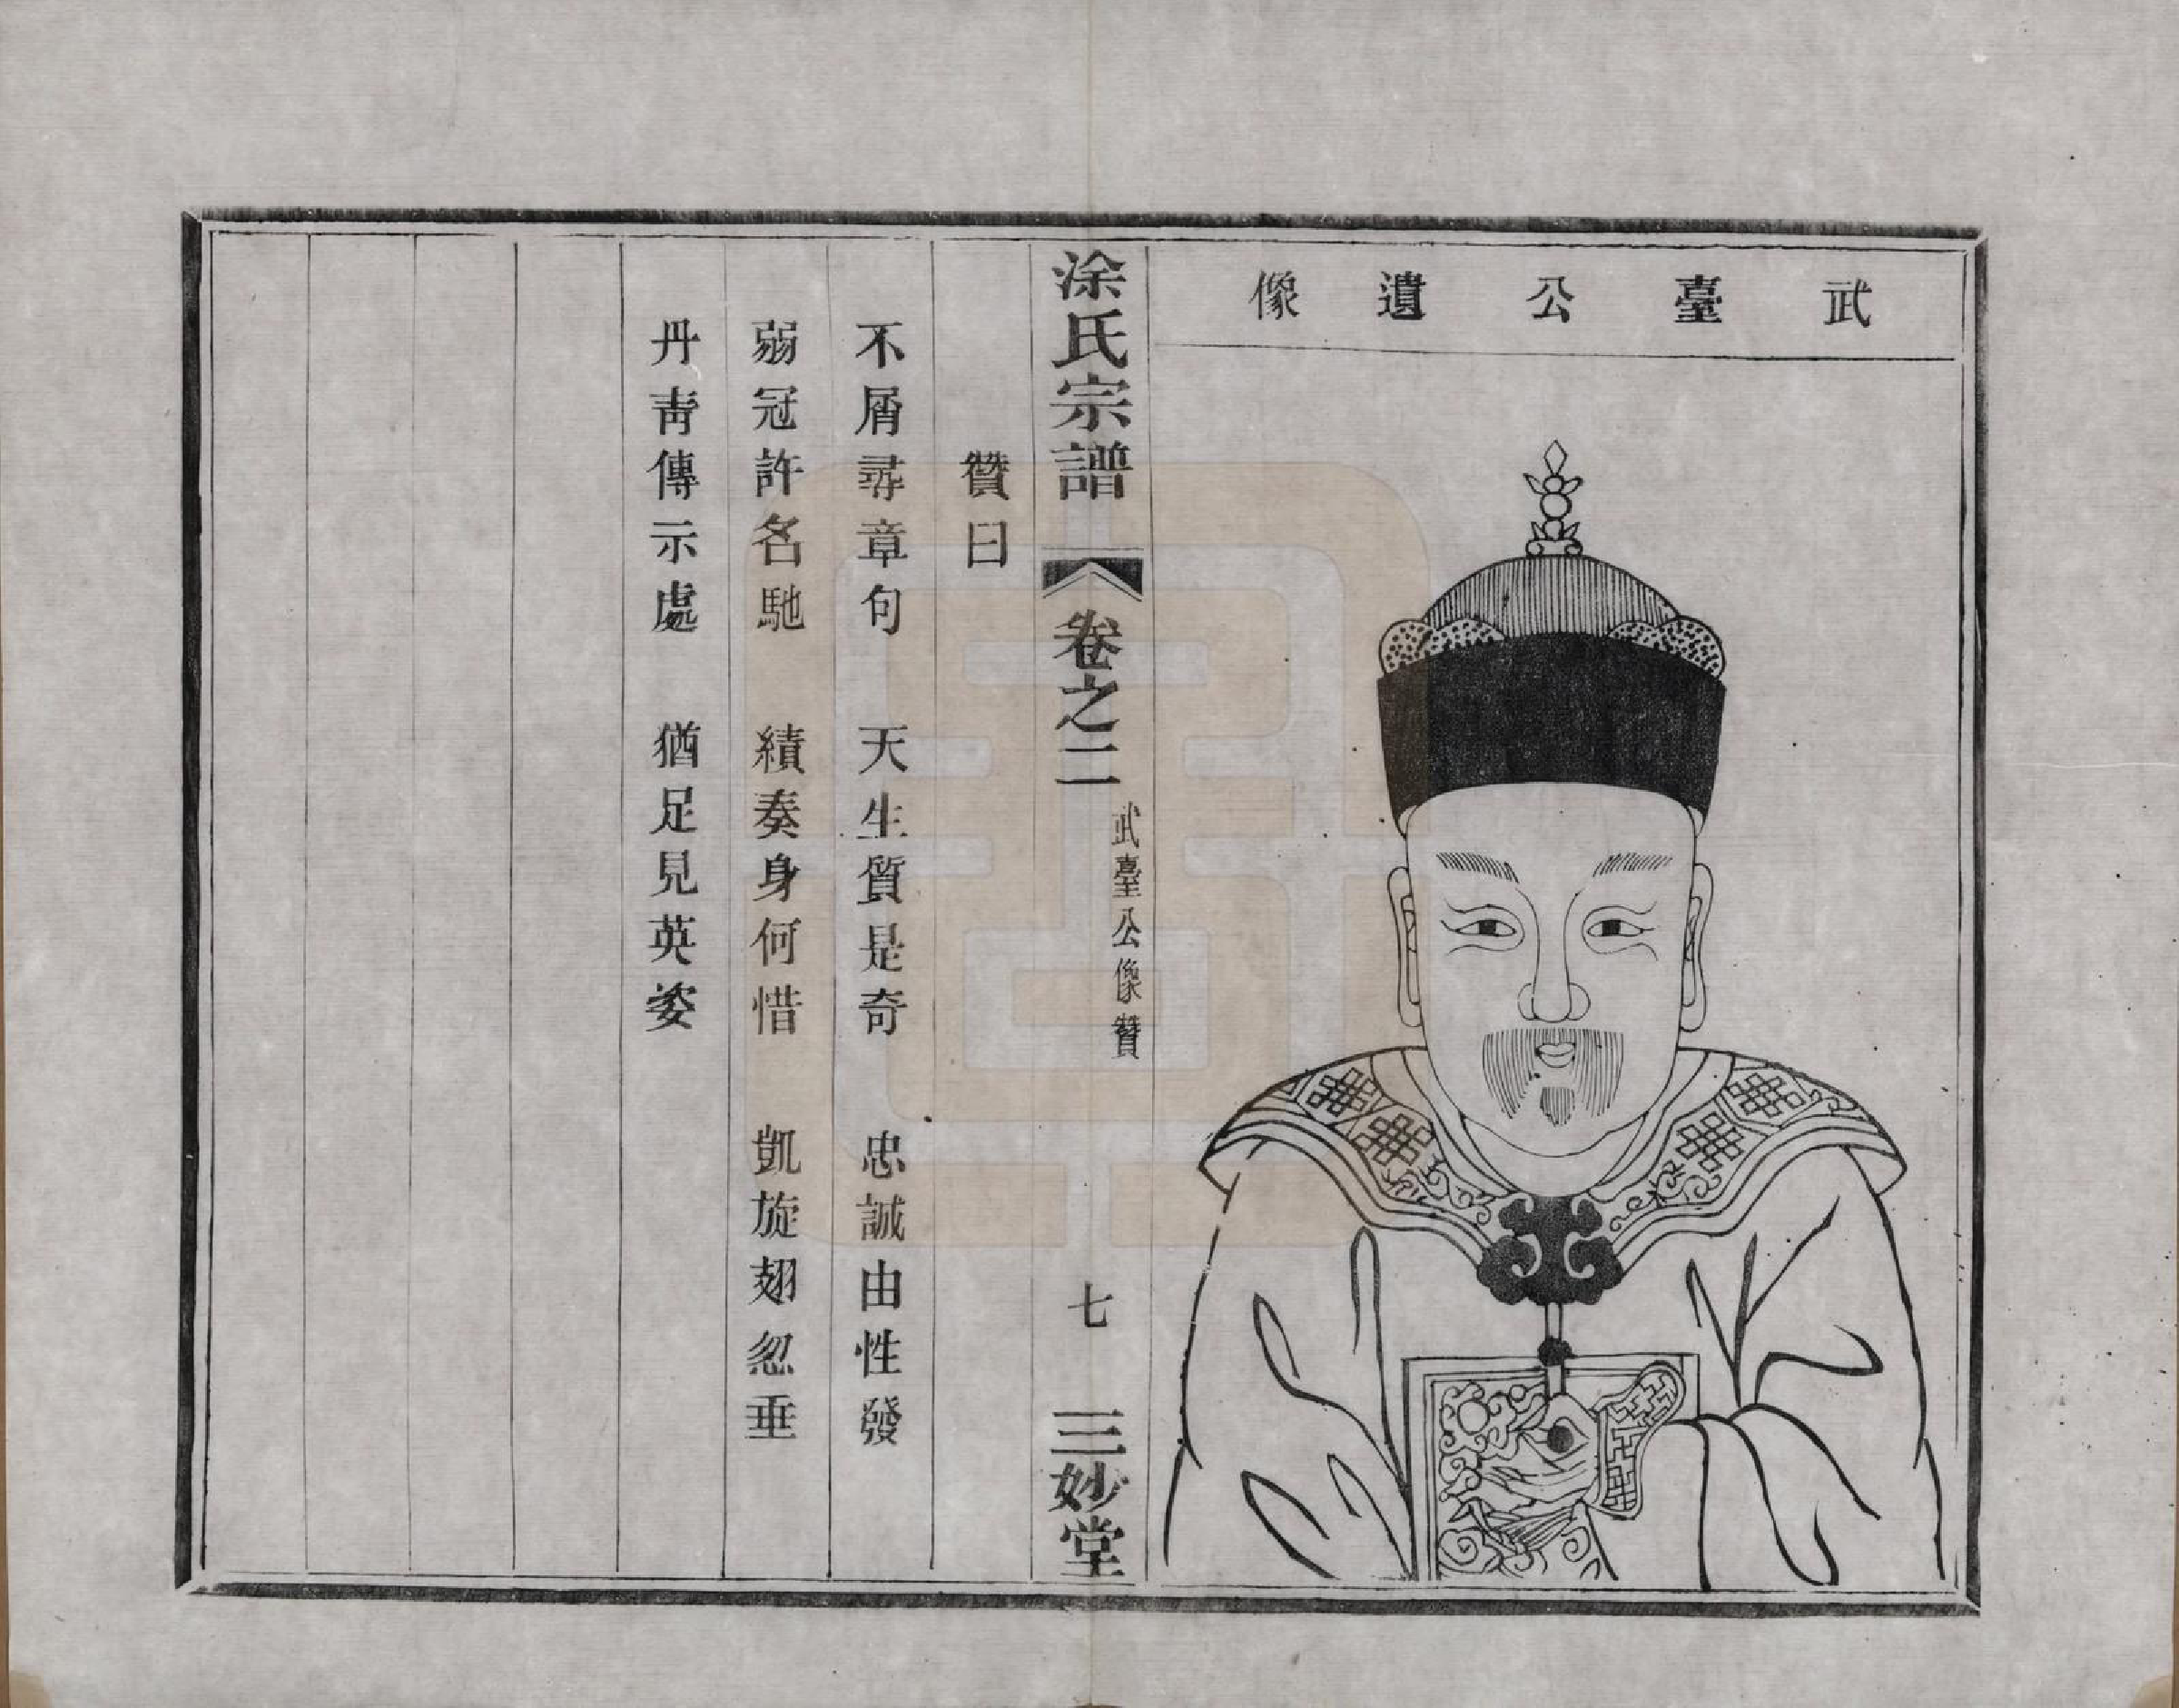 武臺公遺像
涂氏宗譜 卷之二 武臺公像贊 七 三妙堂
贊曰
不屑尋章句 天生質是奇 忠誠由性發
弱冠許名馳 績奏身何惜 凱旋翅忽垂
丹靑傳示處 猶足見英姿